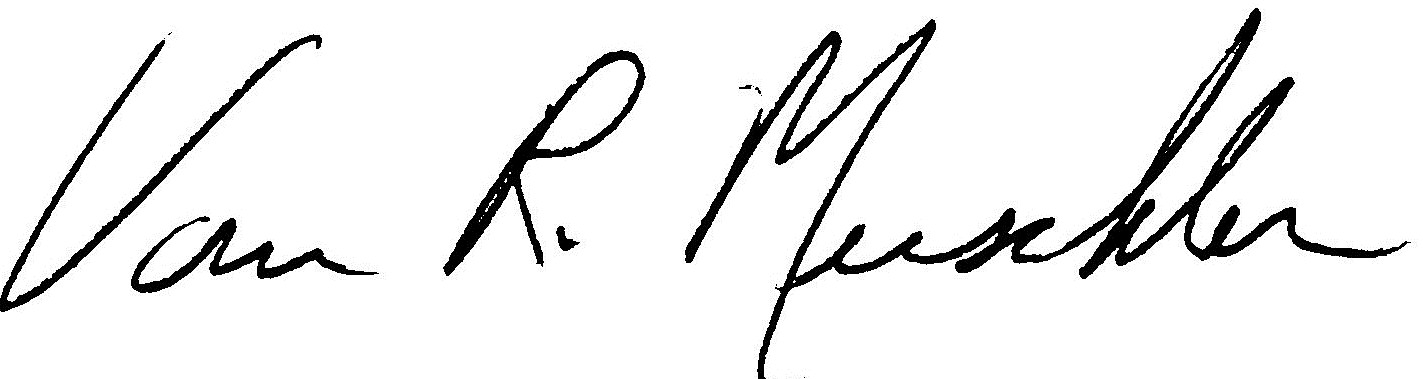 Van R. Meuschler